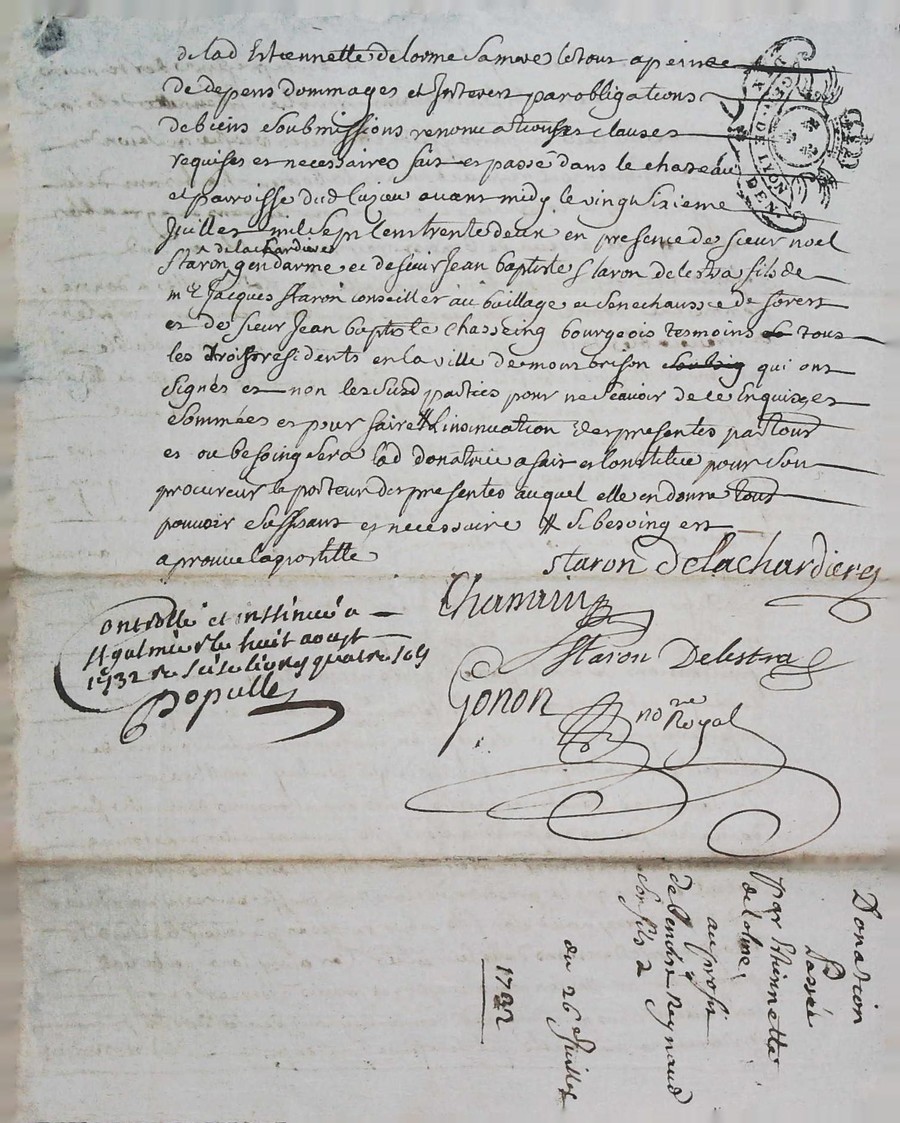 de lad Estiennette delorme sa mere le tout a peinne
de depens dommages et Interest par obligations
de biens soubmissions renonciations et clauses
requises et necessaires fait et passé dans le chateau
et parroisse dud Cuzieu avant midy le vingt sixieme
Juillet mil sept cent trente deux en presence de sieur noel
de lachardiere
Staron gendarme et de sieur Jean baptiste Staron delestra fils de
me Jacques Staron conseiller au bailliage et senechaussee de forest
et de sieur Jean baptiste Chasseing bourgeois tesmoins tous
les troist residents en la ville de montbrison qui ont
signés et non lesd parties pour ne scavoir de ce Enquises et
sommées et pour faire l'insinuation des presentes par tout
et ou besoing sera lad donatrice a fait et constitue pour son
procureur le porteur des presentes auquel elle en donne tout
pouvoir suffisant et necessaire # si besoing est
aprouve lapostille
staron Delachardieres
Staron Delestra
Gonon nore Royal
Controllé et insinué a
St galmier le huit aoust
1732 re seise livres quatre sols
Populle
Donation
Passée
par Ethiennette
delolme,
au profit
de Reynaud
son fils
du 26 Juillet
1732